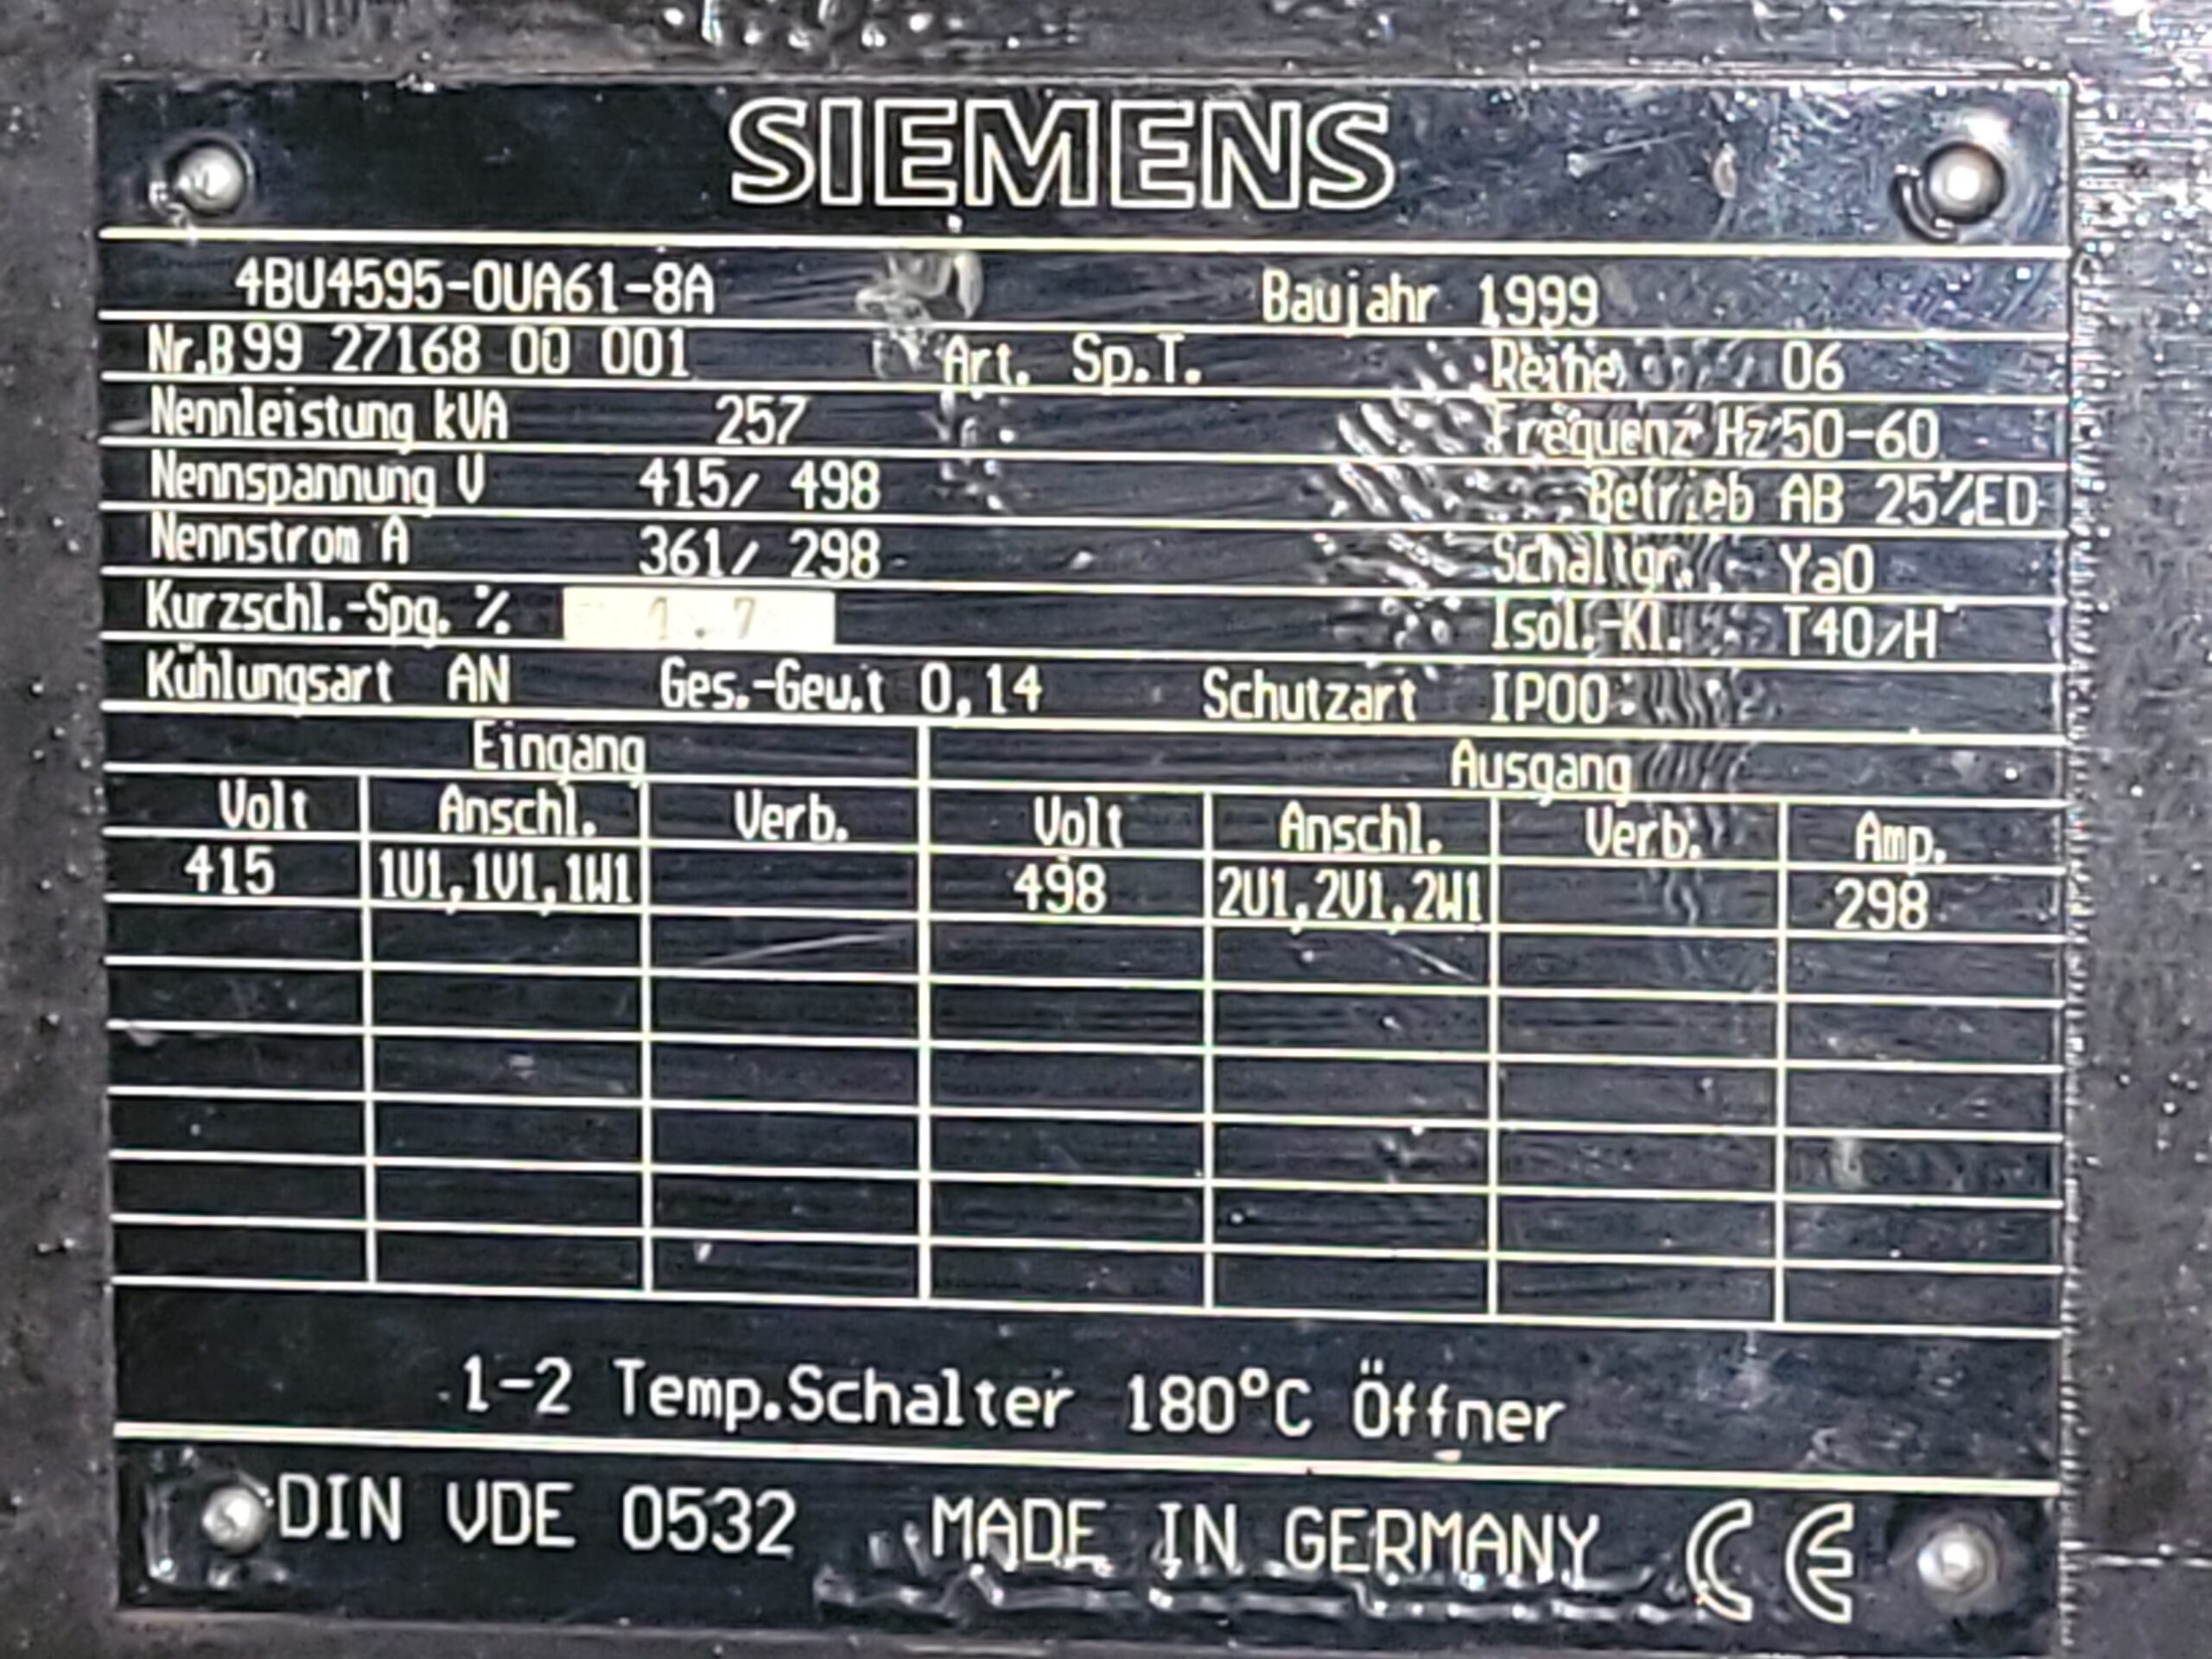 SIEMENS
4BU4595-0UA61-8A Baujahr 1999
Nr.B99 27168 00 001 Art. Sp.T. Reihe 06
Nennleistung kVA 257 Frequenz Hz 50-60
Nennspannung V 415/ 498 Betrieb AB 25%ED
Nennstrom A 361/ 298 Schaltgr. Ya0
Kurzschl.-Spg. % 1.7 Isol.-Kl. T40/H
Kühlungsart AN Ges.-Gew.t 0,14 Schutzart IP00
Eingang Ausgang
Volt Anschl. Verb. Volt Anschl. Verb. Amp.
415 1U1,1V1,1W1 498 2U1,2V1,2W1 298
1-2 Temp.Schalter 180°C Öffner
DIN VDE 0532 MADE IN GERMANY CE